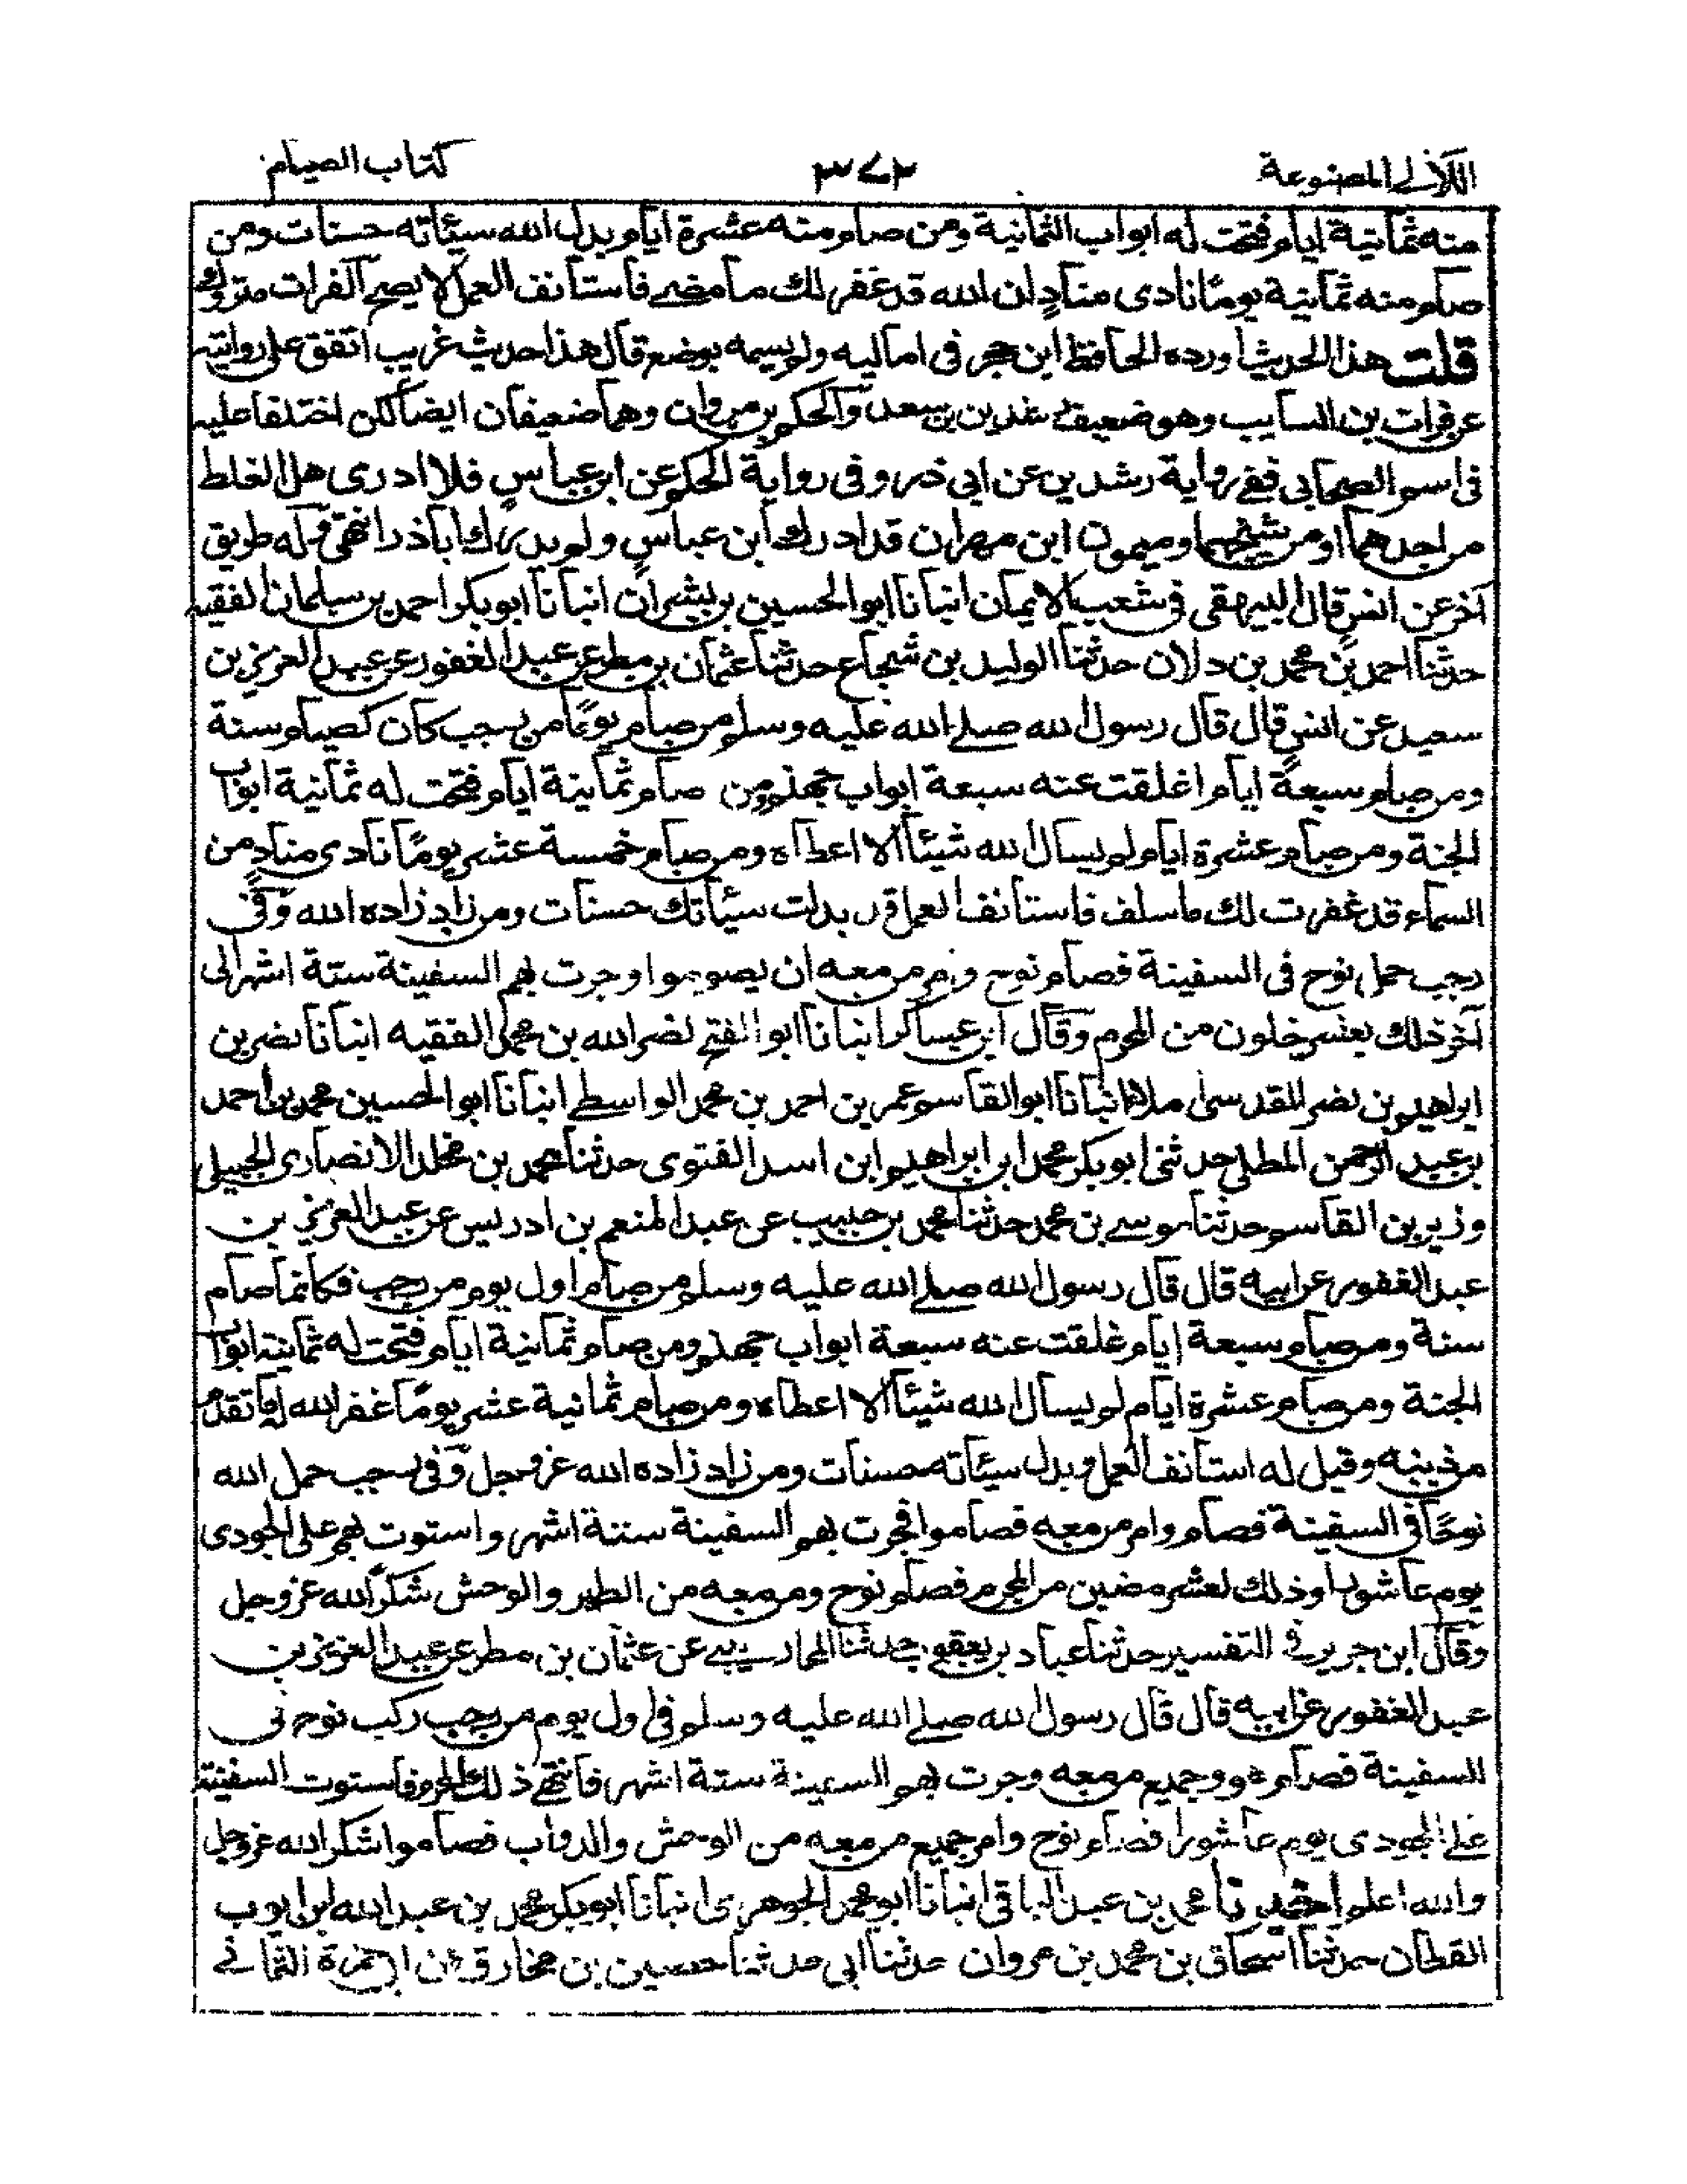 اللآلئ المصنوعة
٣٧٢
كتاب الصيام
منه ثمانية ايام فتحت له ابواب الثمانية ومن صام منه عشرة ايام بدل الله سيئاته حسنات ومن
صام منه ثمانية يومًا نادى منادٍ ان الله قد غفر لك ما مضى فاستانف العمل لا يصح الفرات متروك
قلت هذا الحديث اورده الحافظ ابن حجر فى اماليه ولم يسمه بوضع قال هذا حديث غريب اتفق على روايته
عن فرات بن السايب وهو ضعيف رشدين بن سعد والحكم بن مروان وهما ضعيفان ايضا لكن اختلفا عليه
فى اسم الصحابى ففى رواية رشدين عن ابي ذر وفى رواية الحكم عن ابن عباس فلا ادرى هل الغلط
من احدهما او من شيخهما وميمون ابن مهران قد ادرك ابن عباس ولم يدرك اباذر انتهى وله طريق
آخر عن انس قال البيهقى فى شعب الايمان انبانا ابو الحسين بن بشران انبانا ابو بكر احمد بن سلمان الفقيه
حدثنا احمد بن محمد بن دلان حدثنا الوليد بن شجاع حدثنا عثمان بن مطر عن عبد الغفور عن عبد العزيز بن
سعيد عن انس قال قال رسول الله صلى الله عليه وسلم من صام يومًا من رجب كان كصيام سنة
ومن صام سبعة ايام اغلقت عنه سبعة ابواب جهنم ومن صام ثمانية ايام فتحت له ثمانية ابواب
الجنة ومن صام عشرة ايام لم يسال الله شيئا الا اعطاه ومن صام خمسة عشر يومًا نادى منادٍ من
السماء قد غفرت لك ما سلف فاستانف العمل قد بدلت سيئاتك حسنات ومن زاد زاده الله وفى
رجب حمل نوح فى السفينة فصام نوح وامر من معه ان يصوموا وجرت بهم السفينة ستة اشهر الى
آخر ذلك بعشر خلون من المحرم وقال ابن عساكر انبانا ابو الفتح نصر الله بن محمد الفقيه انبانا نصر بن
ابراهيم بن نصر المقدسى املاءً انبانا ابو القاسم عمر بن احمد بن محمد الواسطى انبانا ابو الحسين محمد بن احمد
بن عبد الرحمن الملطى حدثنى ابو بكر محمد ابن ابراهيم ابن اسد الفتوى حدثنا محمد بن مخلد الانصارى الجبيلى
وزير بن القاسم حدثنا موسى بن محمد حدثنا محمد بن حبيب عن عبد المنعم بن ادريس عن عبد العزيز بن
عبد الغفور عن ابيه قال قال رسول الله صلى الله عليه وسلم من صام اول يوم من رجب فكانما صام
سنة ومن صام سبعة ايام غلقت عنه سبعة ابواب جهنم ومن صام ثمانية ايام فتحت له ثمانية ابواب
الجنة ومن صام عشرة ايام لم يسال الله شيئا الا اعطاه ومن صام ثمانية عشر يومًا غفر الله له ما تقدم
من ذنبه وقيل له استانف العمل وبدل سيئاته حسنات ومن زاد زاده الله عز وجل وفى رجب حمل الله
نوحًا فى السفينة فصام وامر من معه فصاموا فجرت بهم السفينة ستة اشهر واستوت بهم على الجودى
يوم عاشورا وذلك لعشر مضين من المحرم فصام نوح ومن معه من الطير والوحش شكرًا لله عز وجل
وقال ابن جرير فى التفسير حدثنا عباد بن يعقوب حدثنا المحاربى عن عثمان بن مطر عن عبد العزيز بن
عبد الغفور عن ابيه قال قال رسول الله صلى الله عليه وسلم فى اول يوم من رجب ركب نوح فى
السفينة فصام هو وجميع من معه وجرت بهم السفينة ستة اشهر فانتهى ذلك المحرم فاستوت السفينة
على الجودى يوم عاشورا فصام نوح وامر جميع من معه من الوحش والدواب فصاموا شكر الله عز وجل
والله اعلم اخبرنا محمد بن عبد الباقى انبانا ابو محمد الجوهرى انبانا ابو بكر محمد بن عبد الله ابن ايوب
القطان حدثنا اسحاق بن محمد بن مروان حدثنا ابى حدثنا حسين بن مخارق عن ابى حمزة الثمالى